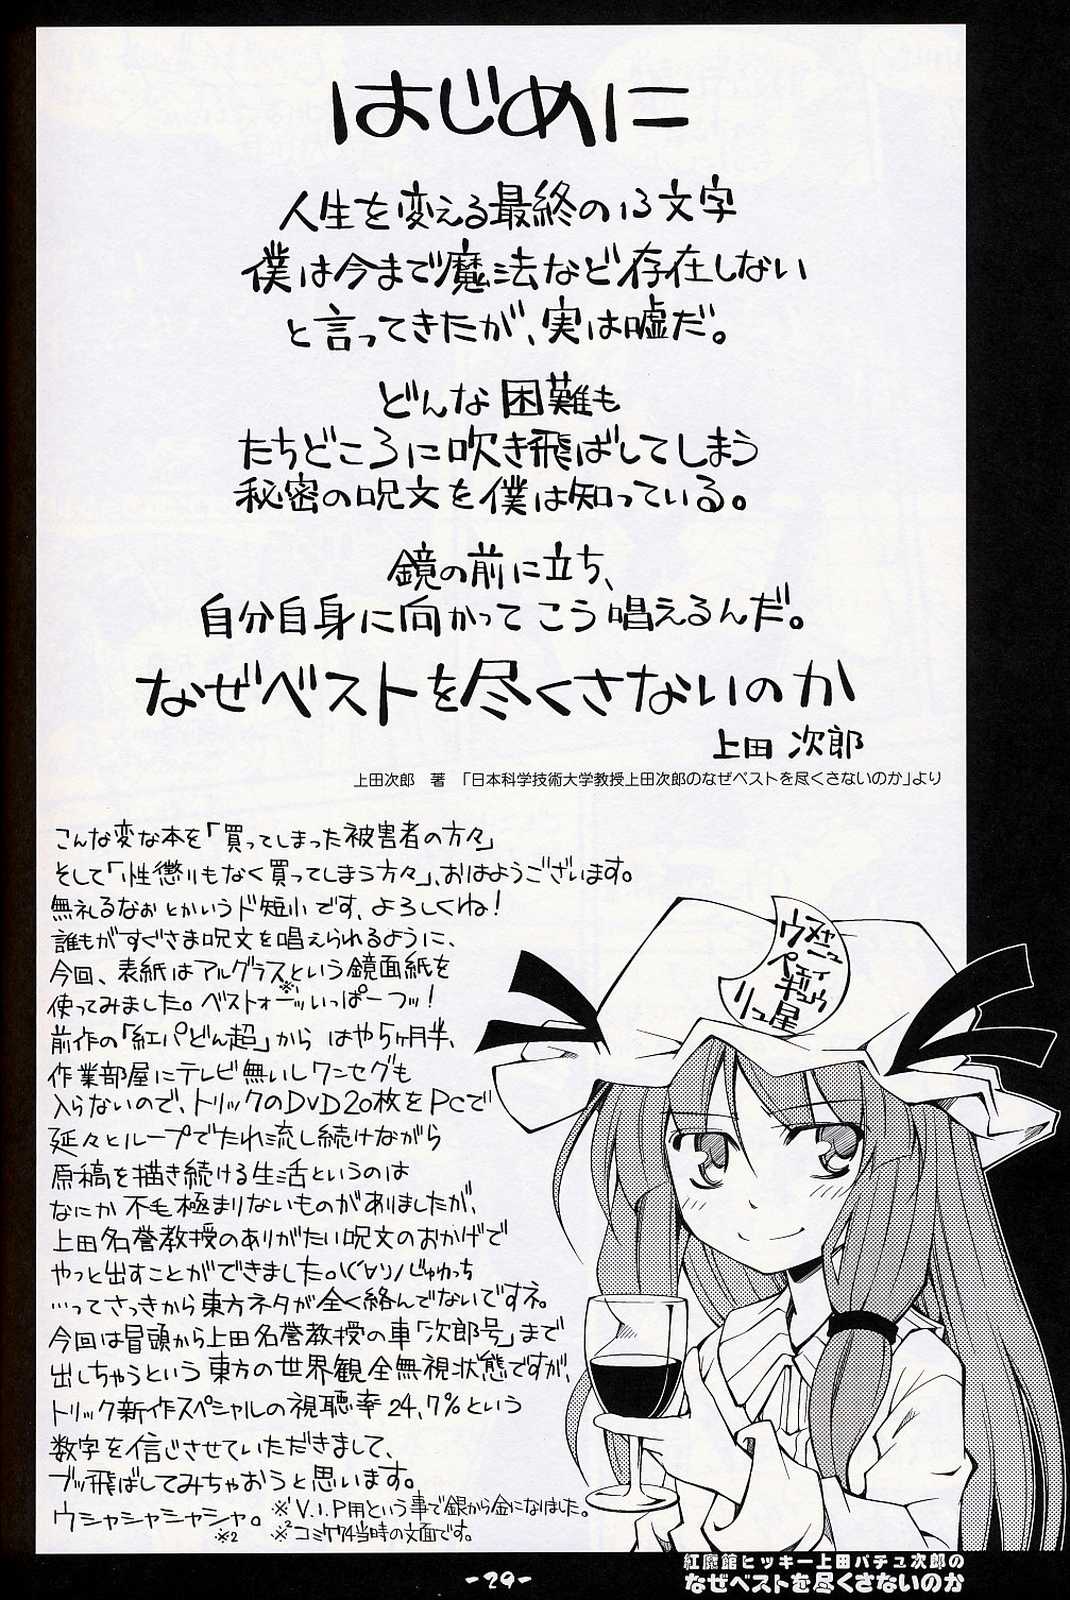 はじめに
人生を変える最終の13文字
僕は今まで魔法など存在しない
と言ってきたが、実は嘘だ。
どんな困難も
たちどころに吹き飛ばしてしまう
秘密の呪文を僕は知っている。
鏡の前に立ち、
自分自身に向かってこう唱えるんだ。
なぜベストを尽くさないのか
上田 次郎
上田次郎 著 「日本科学技術大学教授上田次郎のなぜベストを尽くさないのか」より
こんな変な本を「買ってしまった被害者の方々」
そして「性懲りもなく買ってしまう方々」、おはようございます。
無礼るなぉとかいうド短小です、よろしくね!
誰もがすぐさま呪文を唱えられるように、
今回、表紙はアルグラスという鏡面紙を
※1
使ってみました。ベストォーッいっぱーつッ!
前作の「紅パどん超」から はや5ヶ月半、
作業部屋にテレビ無いしワンセグも
入らないので、トリックのDVD20枚をPCで
延々とループでたれ流し続けながら
原稿を描き続ける生活というのは
なにか不毛極まりないものがありましたが、
上田名誉教授のありがたい呪文のおかげで
やっと出すことができました。\(∀ソ)ノじゅわっち
…ってさっきから東方ネタが全く絡んでないですネ。
今回は冒頭から上田名誉教授の車「次郎号」まで
出しちゃうという東方の世界観全無視状態ですが、
トリック新作スペシャルの視聴率24.7%という
数字を信じさせていただきまして、
ブッ飛ばしてみちゃおうと思います。
ウシャシャシャシャ。
※2
※1 V.I.P用という事で銀から金になりました。
※2 コミケ74当時の文面です。
-29-
紅魔館ヒッキー上田パチュ次郎の
なぜベストを尽くさないのか